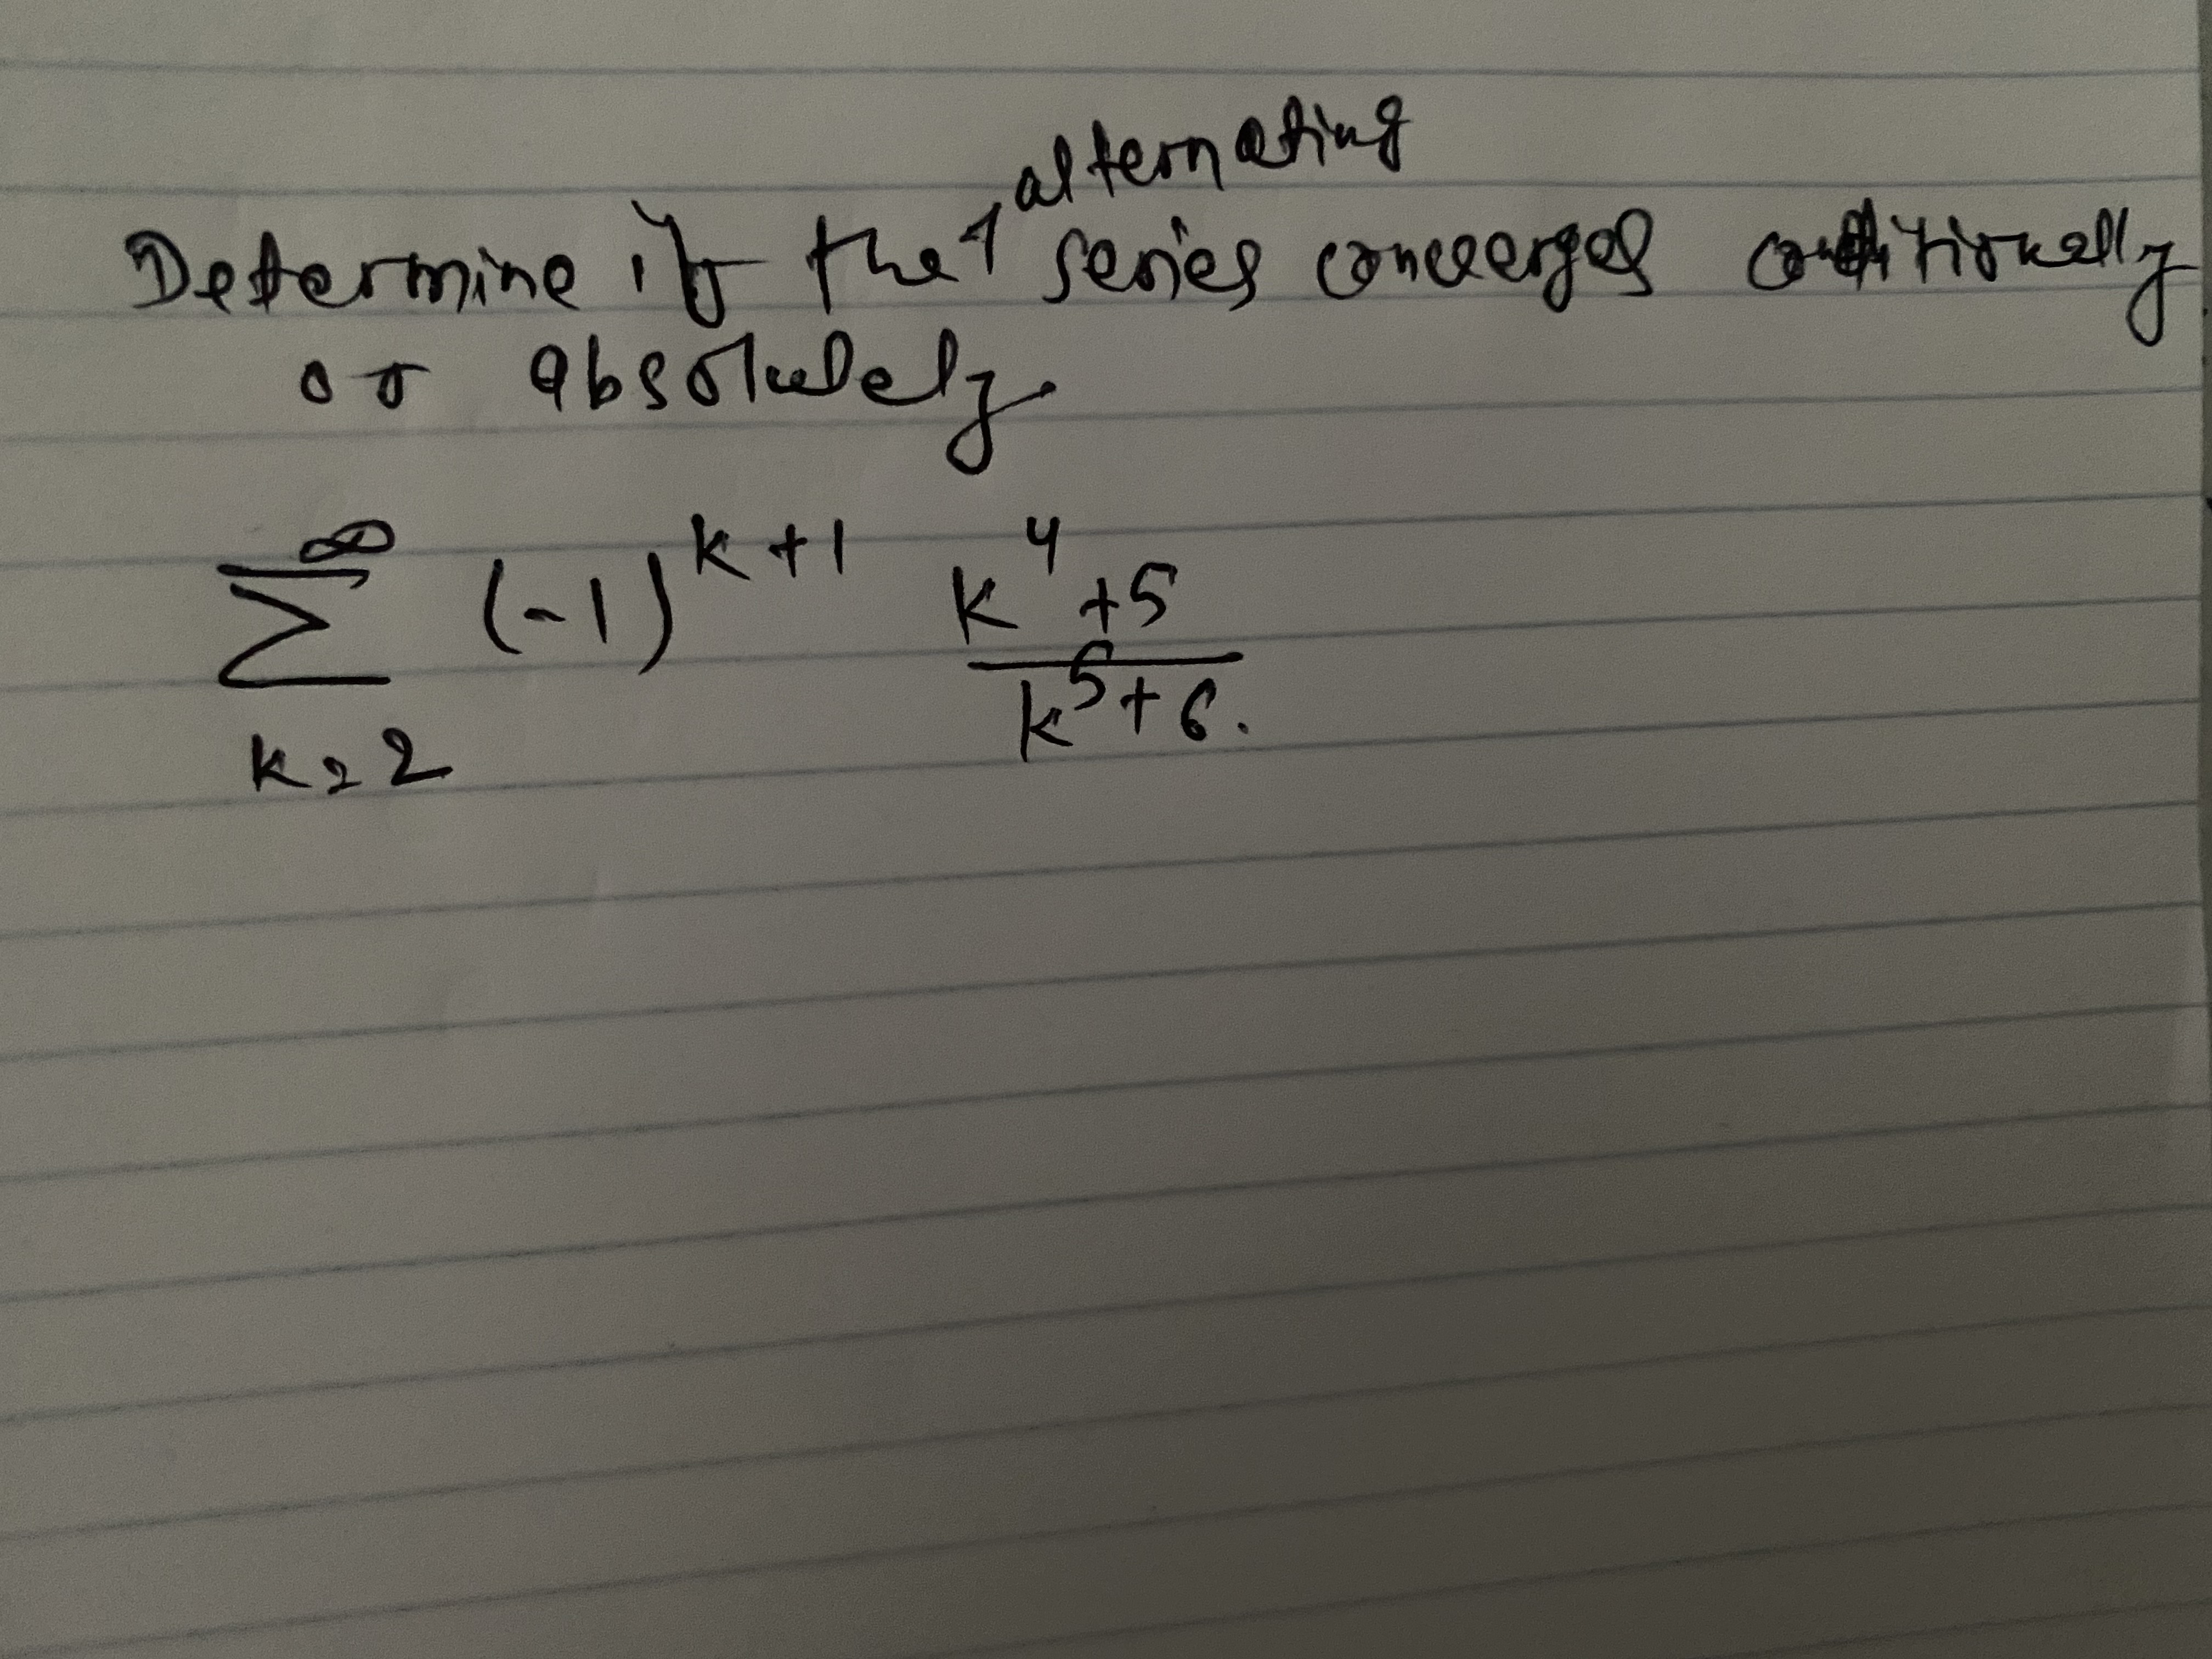 Determine if the alternating series converges conditionally
or absolutely
∞
Σ (-1)^{k+1} \frac{k^4+5}{k^5+6}.
k=2